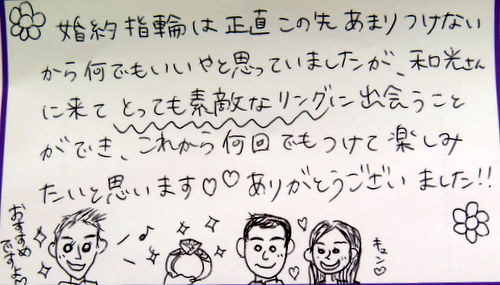 婚約指輪は正直この先あまりつけない
から何でもいいやと思っていましたが、和光さん
に来てとっても素敵なリングに出会うこと
ができ、これから何回でもつけて楽しみ
たいと思います♡♡ありがとうございました!!
おすすめ
ですよ♡
キュン♡